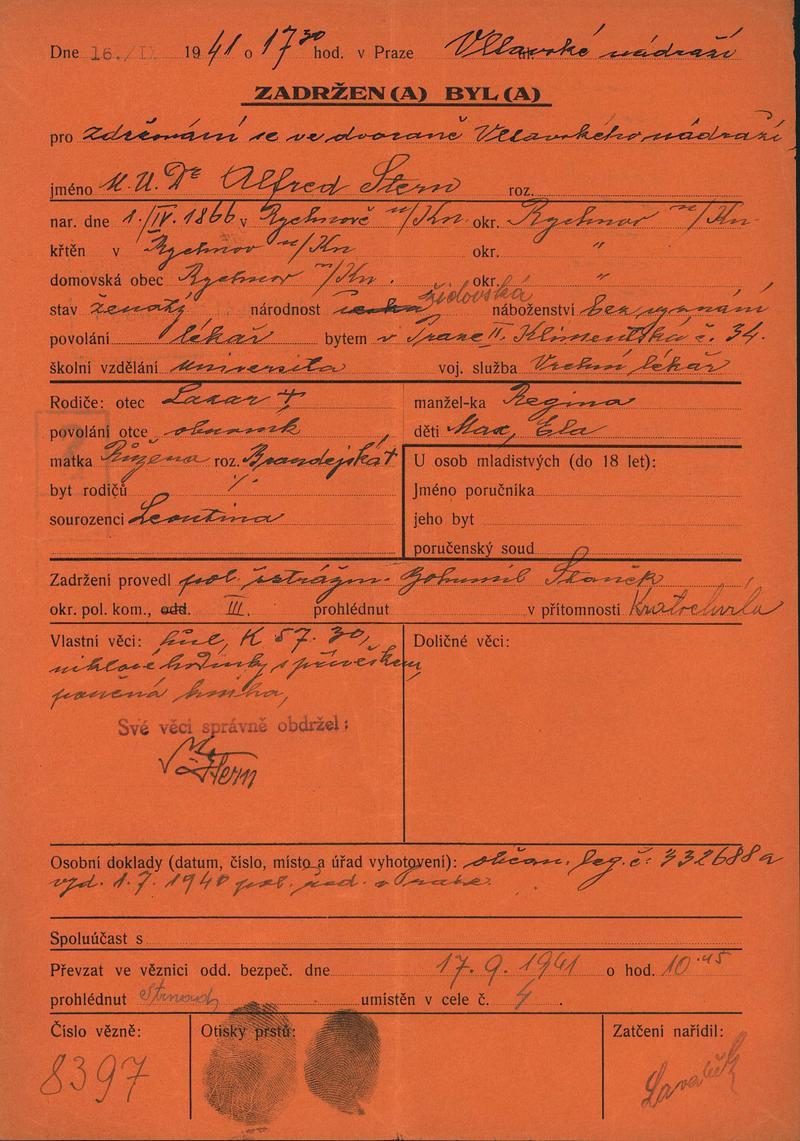 Dne 16./IX 1941 o 17³⁰ hod. v Praze Vltavské nádraží
ZADRŽEN(A) BYL(A)
pro zdržování se ve dvoraně Vltavského nádraží
jméno M.U.Dr Alfred Stern roz.
nar. dne 1./IV. 1866 v Rychnově n/Kn. okr. Rychnov n/Kn.
křtěn v Rychnov n/Kn okr. "
domovská obec Rychnov n/Kn. okr. "
stav ženatý národnost židovská náboženství bez vyznání
povolání lékař bytem v Praze II. Klimentská č. 34.
školní vzdělání universita voj. služba Vrchní lékař
Rodiče: otec Lazar † manžel-ka Regina
povolání otce obchodník děti Max, Ela
matka Růžena roz. Brandejská † U osob mladistvých (do 18 let):
byt rodičů ./. Jméno poručníka
sourozenci Leontina jeho byt
poručenský soud
Zadržení provedl pol. Bohumil Staněk
okr. pol. kom., odd. III. prohlédnut v přítomnosti Kratochvíla
Vlastní věci: hůl, K 57.30, Doličné věci:
niklové hodinky s přívěskem,
kniha,
Své věci správně obdržel:
Stern
Osobní doklady (datum, číslo, místo a úřad vyhotovení): občan. leg. č: 332688a
vyd. 1.7.1940 pol. řed. v Praze.
Spoluúčast s
Převzat ve věznici odd. bezpeč. dne 17.9.1941 o hod. 10.45
prohlédnut Strnad umístěn v cele č. 4.
Číslo vězně: Otisky prstů: Zatčení nařídil:
8397